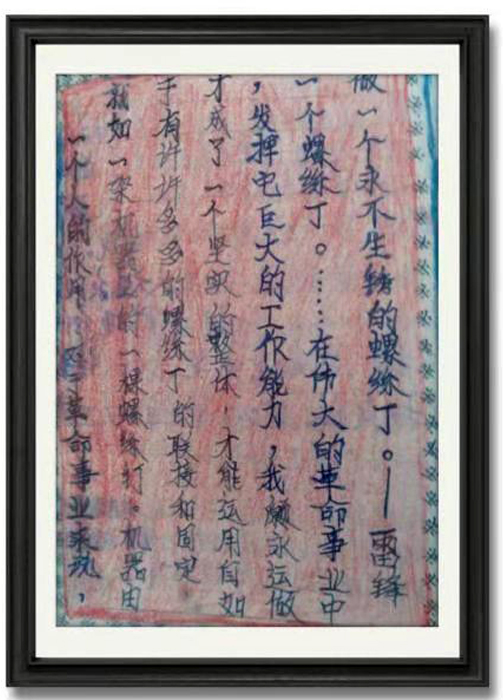 一个人的作用，对于革命事业来说，
就如一架机器上的一棵螺丝钉。机器由
于有许许多多的螺丝丁的联接和固定
才成了一个坚实的整体，才能运用自如
，发挥它巨大的工作能力，我愿永远做
一个螺丝丁。……在伟大的革命事业中
做一个永不生锈的螺丝丁。——雷锋